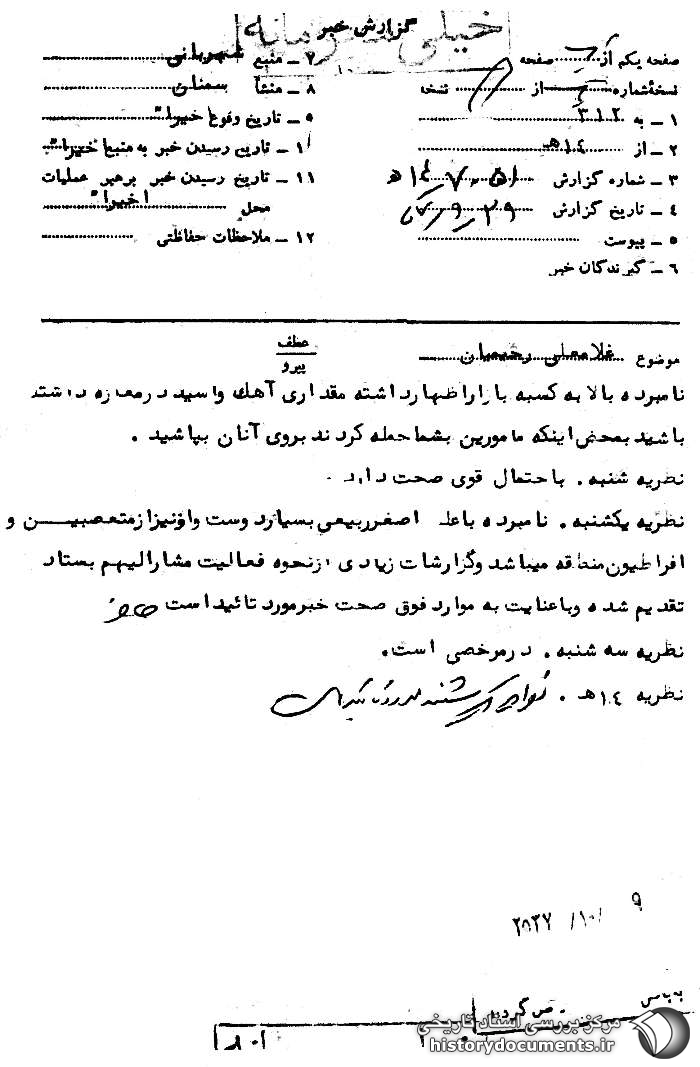 گزارش خبر
خیلی محرمانه
صفحه یکم از صفحه
نسخه‌شماره از نسخه
۱ ـ به ۳۱۲
۲ ـ از ۱٤هـ
۳ ـ شماره گزارش
٤ ـ تاریخ گزارش
٥ ـ پیوست
٦ ـ گیرندگان خبر
۷ ـ منبع شهربانی
۸ ـ منشأ سمنان
۹ ـ تاریخ وقوع اخیرا"
۱۰ ـ تاریخ رسیدن خبر به منبع اخیرا"
۱۱ ـ تاریخ رسیدن خبر برهبر عملیات
محل اخیرا"
۱۲ ـ ملاحظات حفاظتی
موضوع غلامعلی رحیمیان
عطف
پیرو
نامبرده بالا به کسبه بازار اظهار داشته مقداری آهک و اسید در مغازه داشته
باشید بمحض اینکه مامورین بشما حمله کردند بروی آنان بپاشید .
نظریه شنبه . باحتمال قوی صحت دارد .
نظریه یکشنبه . نامبرده با اصغر ربیعی بسیار دوست و او نیز از متعصبین و
افراطیون منطقه میباشد و گزارشات زیادی از نحوه فعالیت مشارالیهم بستاد
تقدیم شده و با عنایت به موارد فوق صحت خبر مورد تائید است
نظریه سه شنبه . در مرخصی است .
نظریه ۱٤هـ .
۹ /۱۰/ ۲۵۳۷
مرکز بررسی اسناد تاریخی
historydocuments.ir